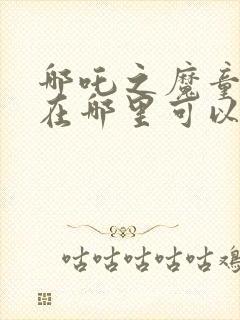 哪吒之魔童
在哪里可以
咕咕咕咕咕鸡